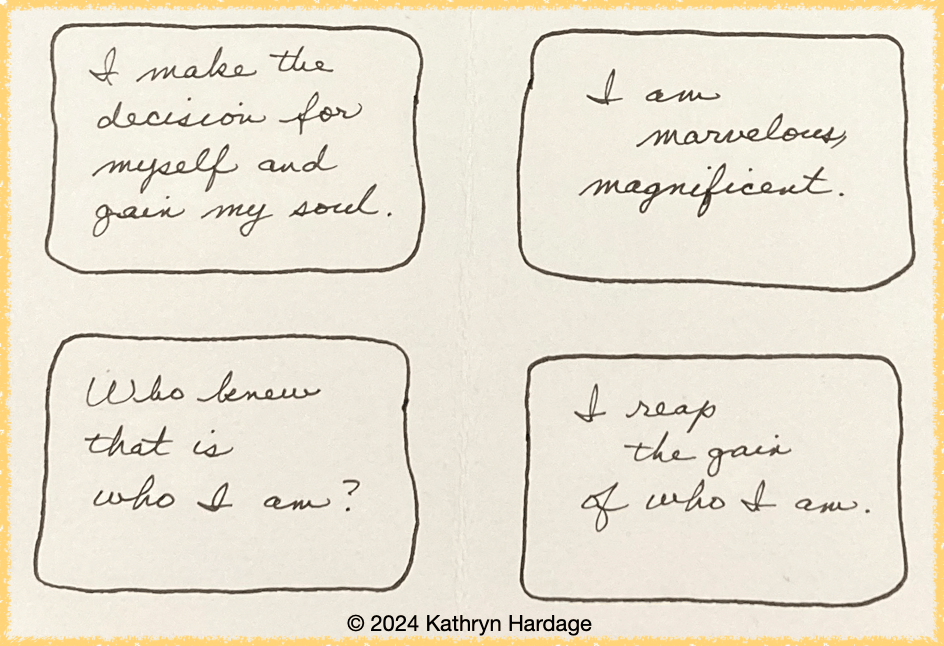 I make the
decision for
myself and
gain my soul.
I am
marvelous,
magnificent.
Who knew
that is
who I am?
I reap
the gain
of who I am.
© 2024 Kathryn Hardage